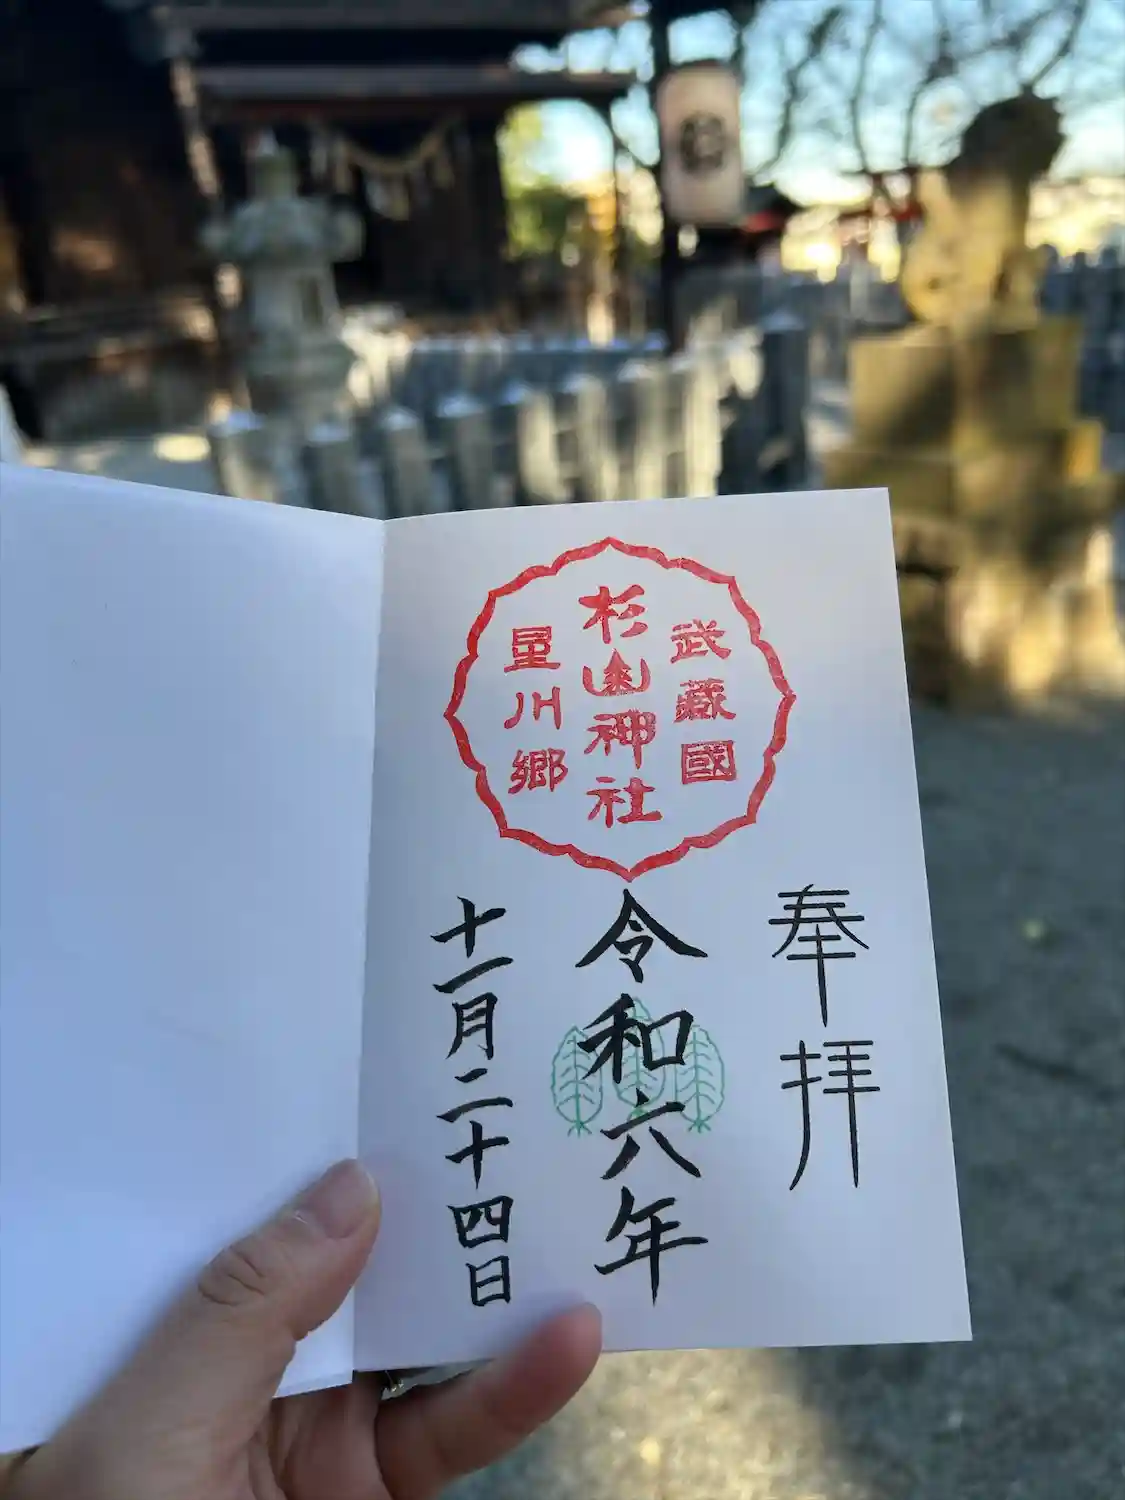 武藏國
杉山神社
星川郷
奉拝
令和六年
十一月二十四日